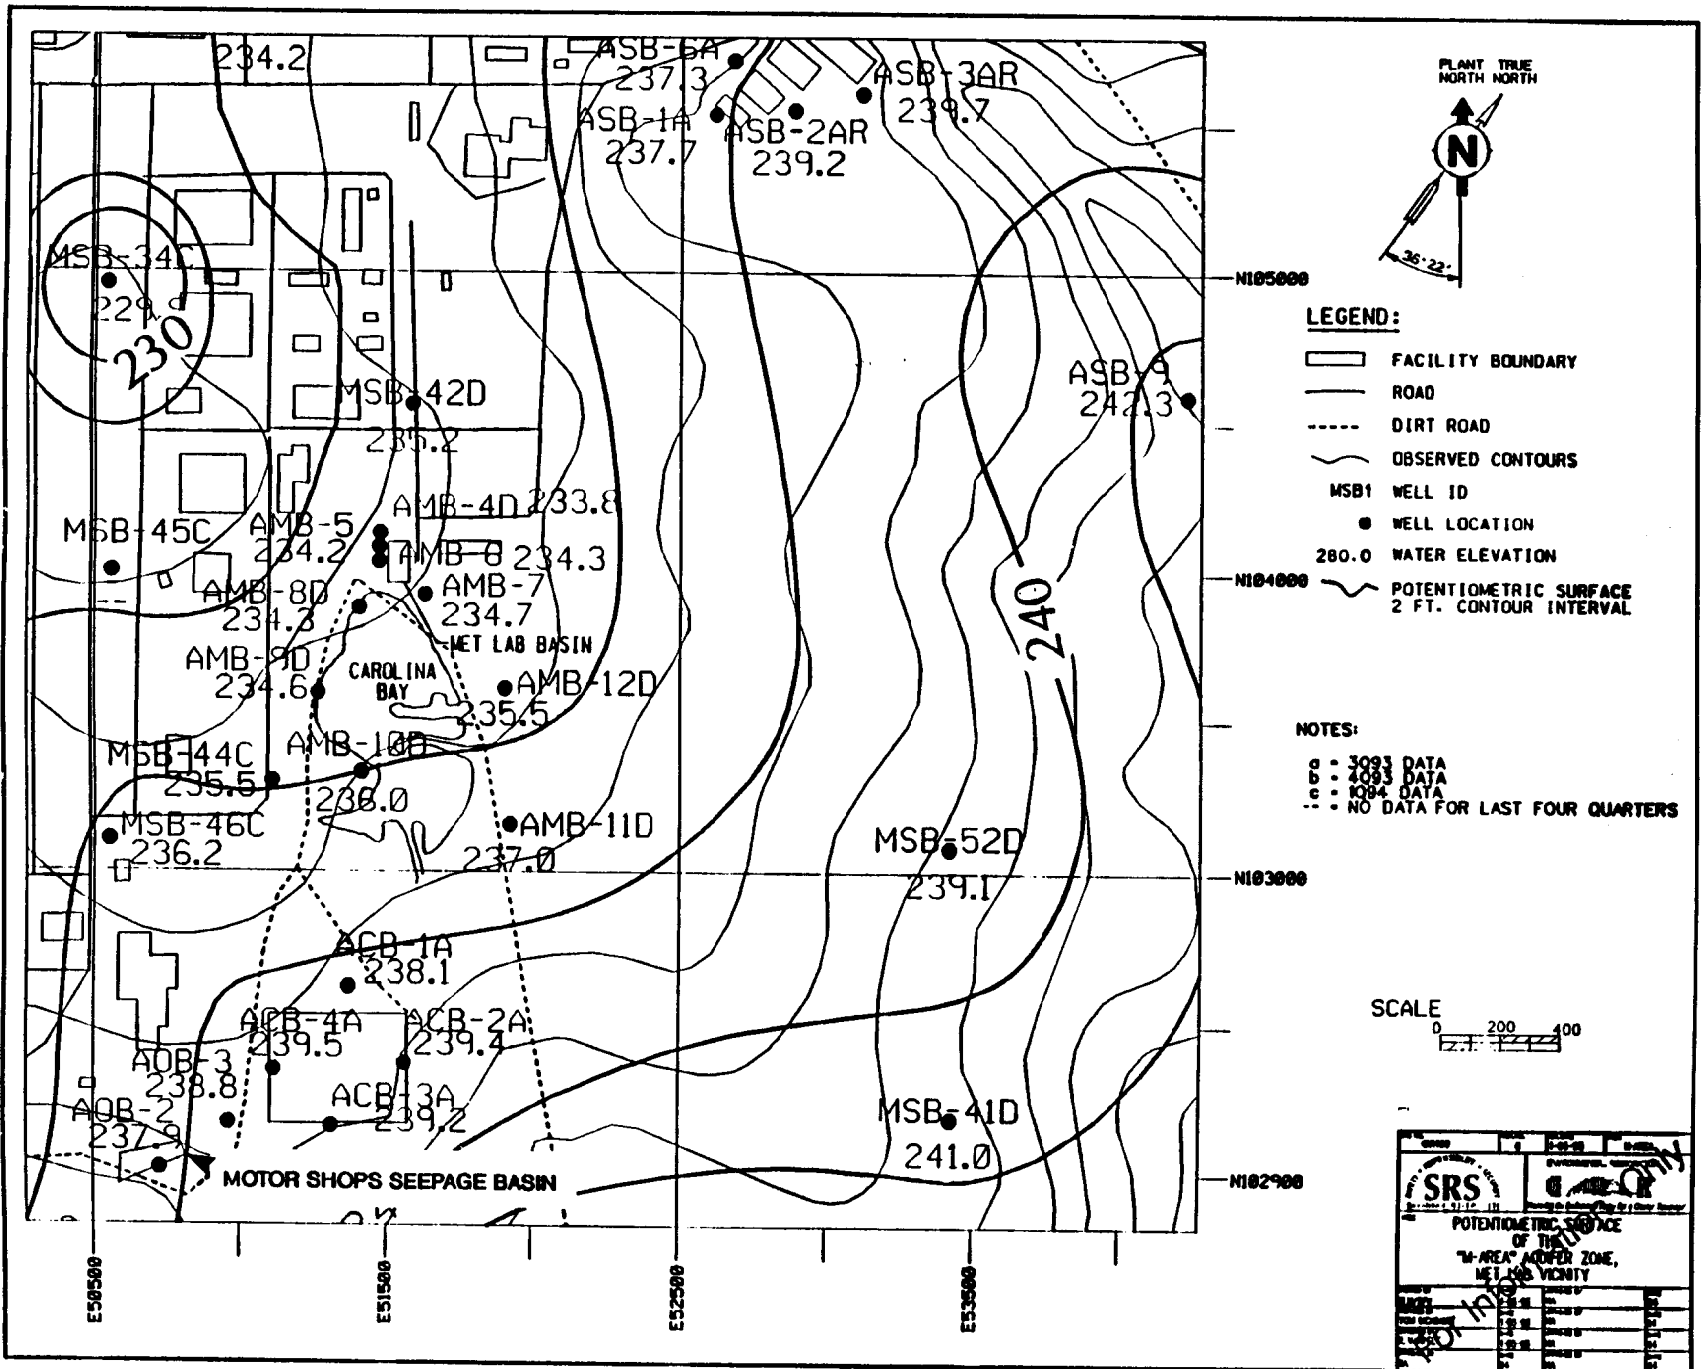 234.2
ASB-6A
237.3
ASB-3AR
239.7
ASB-1A
237.7
ASB-2AR
239.2
MSB-34C
230
ASB-9
242.3
MSB-42D
235.2
AMB-4D 233.8
AMB-5
234.2
MSB-45C
AMB-6 234.3
AMB-7
234.7
AMB-8D
234.3
MET LAB BASIN
240
AMB-9D
234.6
CAROLINA
BAY
AMB-12D
235.5
AMB-10D
236.0
MSB-44C
235.5
MSB-46C
236.2
AMB-11D
237.0
MSB-52D
239.1
ACB-1A
238.1
ACB-4A
239.5
ACB-2A
239.4
AOB-3
238.8
ACB-3A
239.2
AOB-2
237.9
MSB-41D
241.0
MOTOR SHOPS SEEPAGE BASIN
N105000
N104000
N103000
N102900
E50500
E51500
E52500
E53500
PLANT TRUE
NORTH NORTH
N
36°22'
LEGEND:
FACILITY BOUNDARY
ROAD
DIRT ROAD
OBSERVED CONTOURS
MSB1 WELL ID
WELL LOCATION
280.0 WATER ELEVATION
POTENTIOMETRIC SURFACE
2 FT. CONTOUR INTERVAL
NOTES:
a - 3Q93 DATA
b - 4Q93 DATA
c - 1Q94 DATA
-- - NO DATA FOR LAST FOUR QUARTERS
SCALE
0 200 400
SRS
POTENTIOMETRIC SURFACE
OF THE
"M-AREA" AQUIFER ZONE,
MET LAB VICINITY
For Information Only